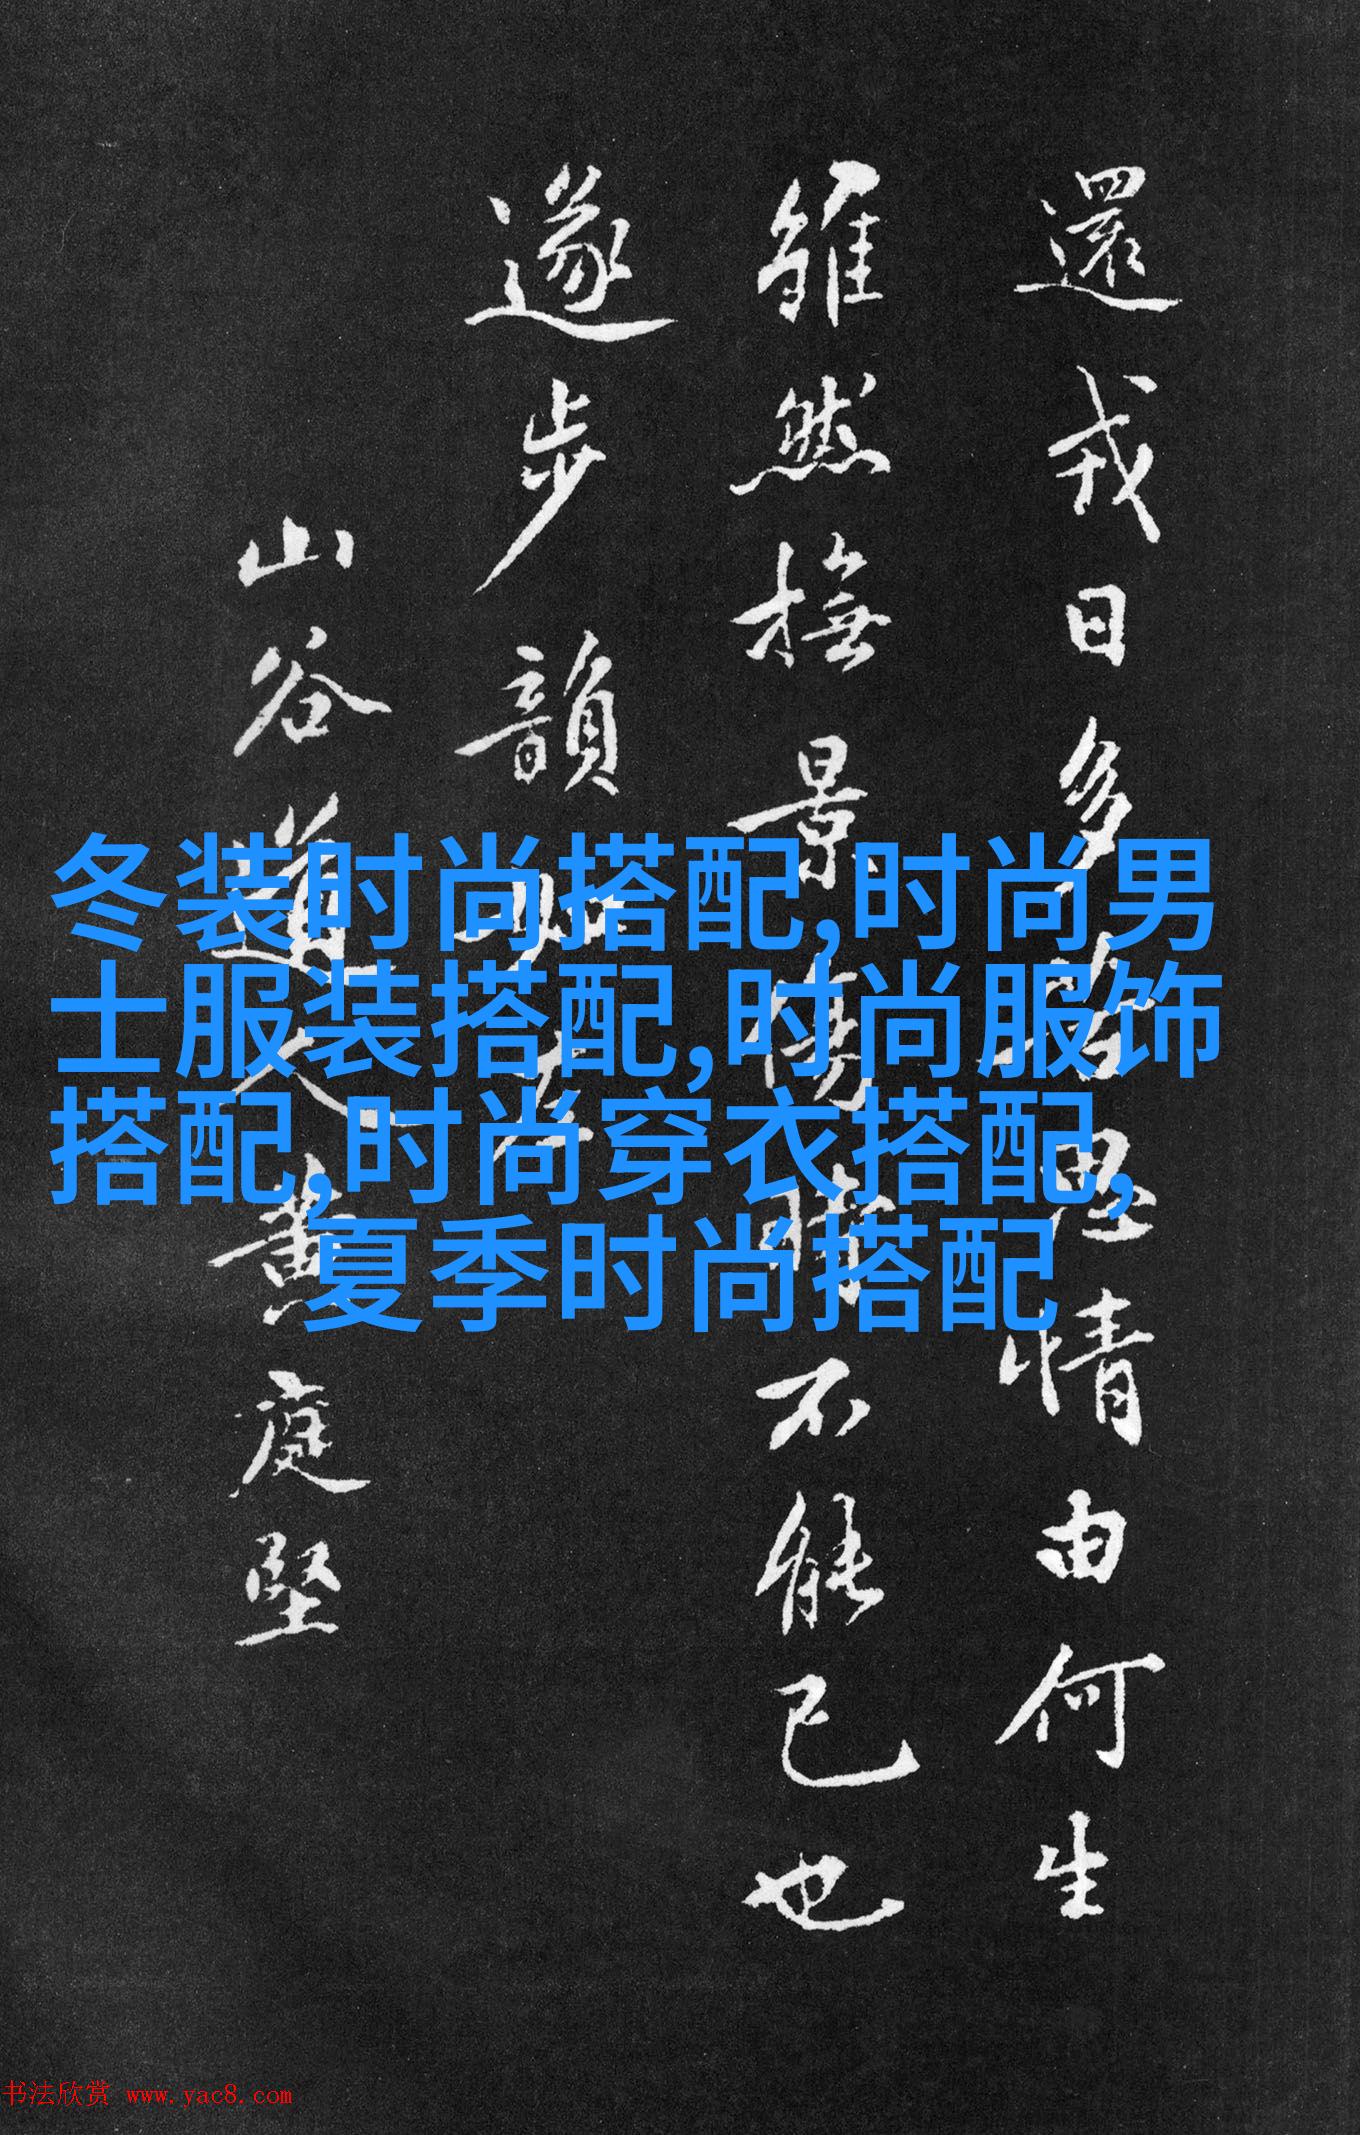 還我日多苦思情由何生
雖然撫景傷時不能已也
遂步韻如左
山谷道人黄庭堅
冬装时尚搭配,时尚男
士服装搭配,时尚服饰
搭配,时尚穿衣搭配,
夏季时尚搭配
书法欣赏 www.yac8.com